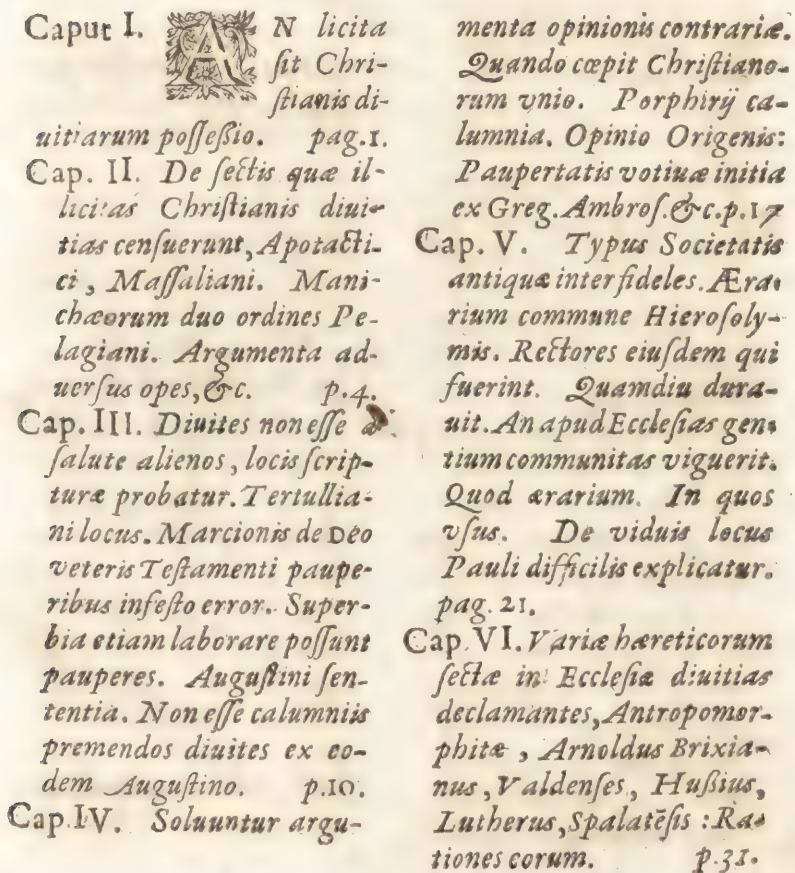 Caput I. AN licita
ſit Chri-
ſtianis di-
uitiarum poſſeßio. pag.1.
Cap. II. De ſectis quæ il-
licitas Chriſtianis diui-
tias cenſuerunt, Apotacti-
ci, Maſſaliani. Mani-
chæorum duo ordines Pe-
lagiani. Argumenta ad-
uerſus opes, &c. p.4.
Cap. III. Diuites non eſſe a
ſalute alienos, locis ſcrip-
turæ probatur. Tertullia-
ni locus. Marcionis de Deo
veteris Teſtamenti paupe-
ribus infeſto error. Super-
bia etiam laborare poſſunt
pauperes. Auguſtini ſen-
tentia. Non eſſe calumniis
premendos diuites ex eo-
dem Auguſtino. p.10.
Cap. IV. Soluuntur argu-
menta opinionis contrariæ.
Quando cœpit Chriſtiano-
rum vnio. Porphirij ca-
lumnia. Opinio Origenis:
Paupertatis votiuæ initia
ex Greg. Ambroſ. &c. p.17
Cap. V. Typus Societatis
antiquæ inter fideles. Æra-
rium commune Hieroſoly-
mis. Rectores eiuſdem qui
fuerint. Quamdiu dura-
uit. An apud Eccleſias gen-
tium communitas viguerit.
Quod ærarium. In quos
vſus. De viduis locus
Pauli difficilis explicatur.
pag. 21.
Cap. VI. Variæ hæreticorum
ſectæ in Eccleſiæ diuitias
declamantes, Antropomor-
phitæ, Arnoldus Brixia-
nus, Valdenſes, Hußius,
Lutherus, Spalatẽſis: Ra-
tiones eorum. p.31.